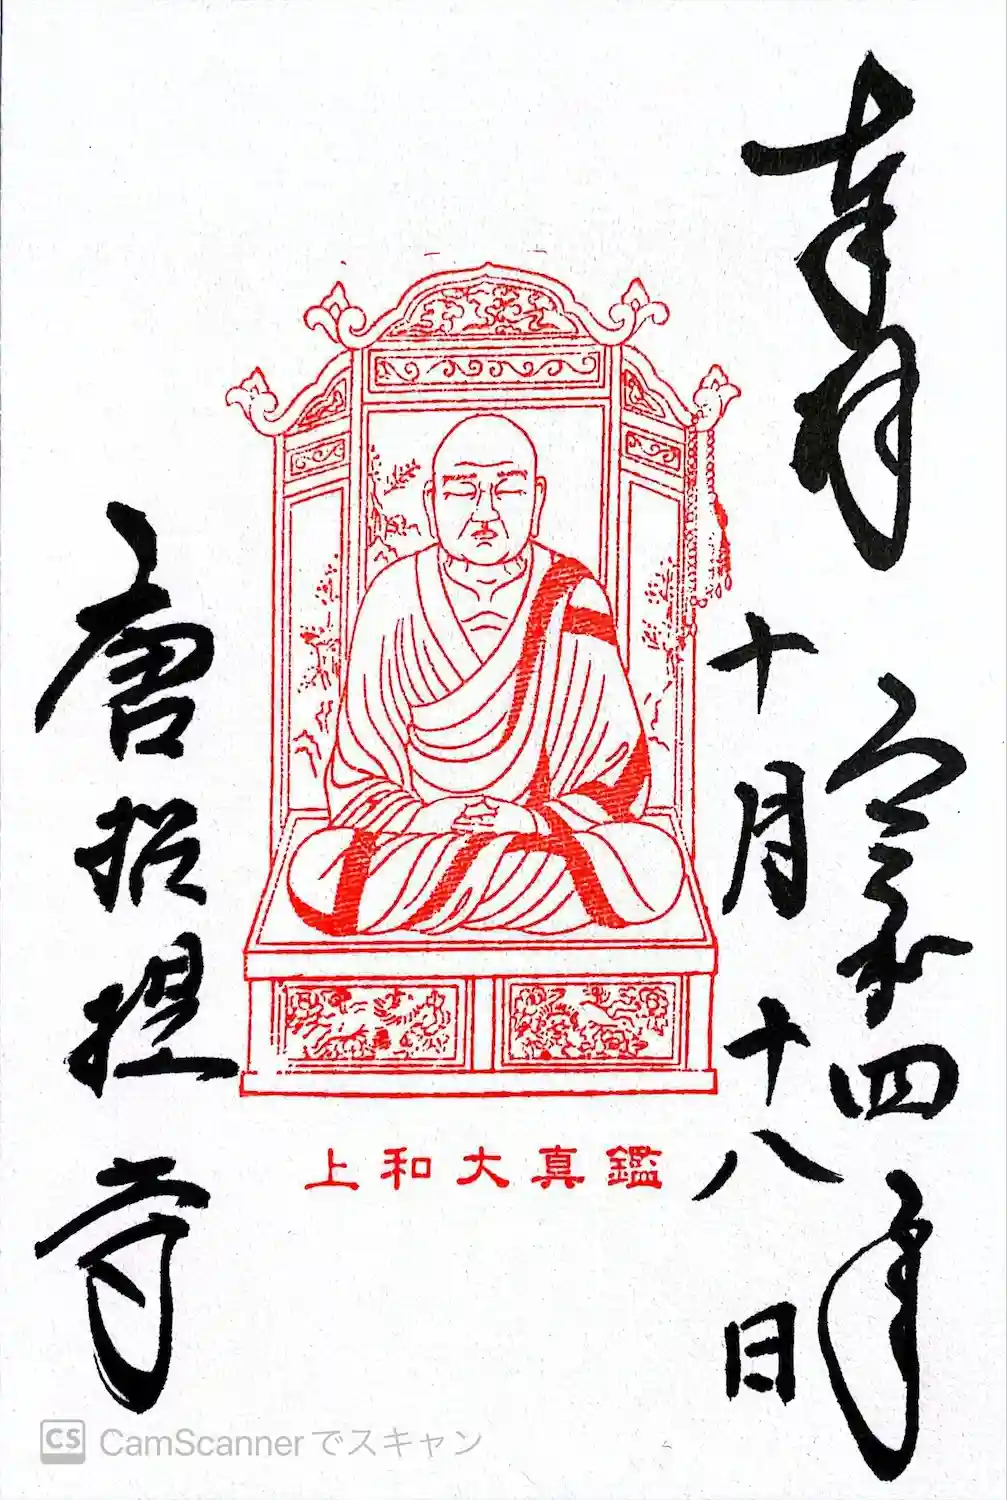 奉拝
令和四年
十月十八日
鑑真大和上
唐招提寺
CS CamScannerでスキャン